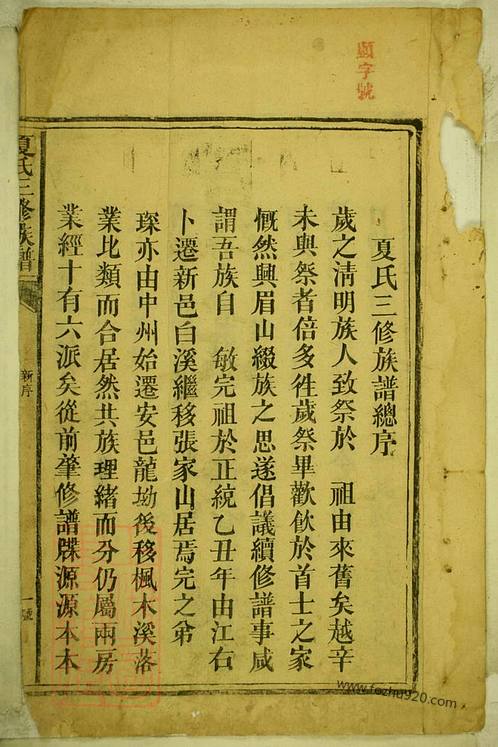 顯字號
夏氏三修族譜總序
歲之清明族人致祭於 祖由來舊矣越辛
未與祭者倍多徃歲祭畢歡飲於首士之家
慨然興眉山綴族之思遂倡議續修譜事咸
謂吾族自 敏完祖於正統乙丑年由江右
卜遷新邑白溪繼移張家山居焉完之弟
琛亦由中州始遷安邑龍坳後移楓木溪落
業比類而合居然共族理緒而分仍屬兩房
業經十有六派矣從前肇修譜牒源源本本
夏氏三修族譜
新序
一號
www.fozhu920.com